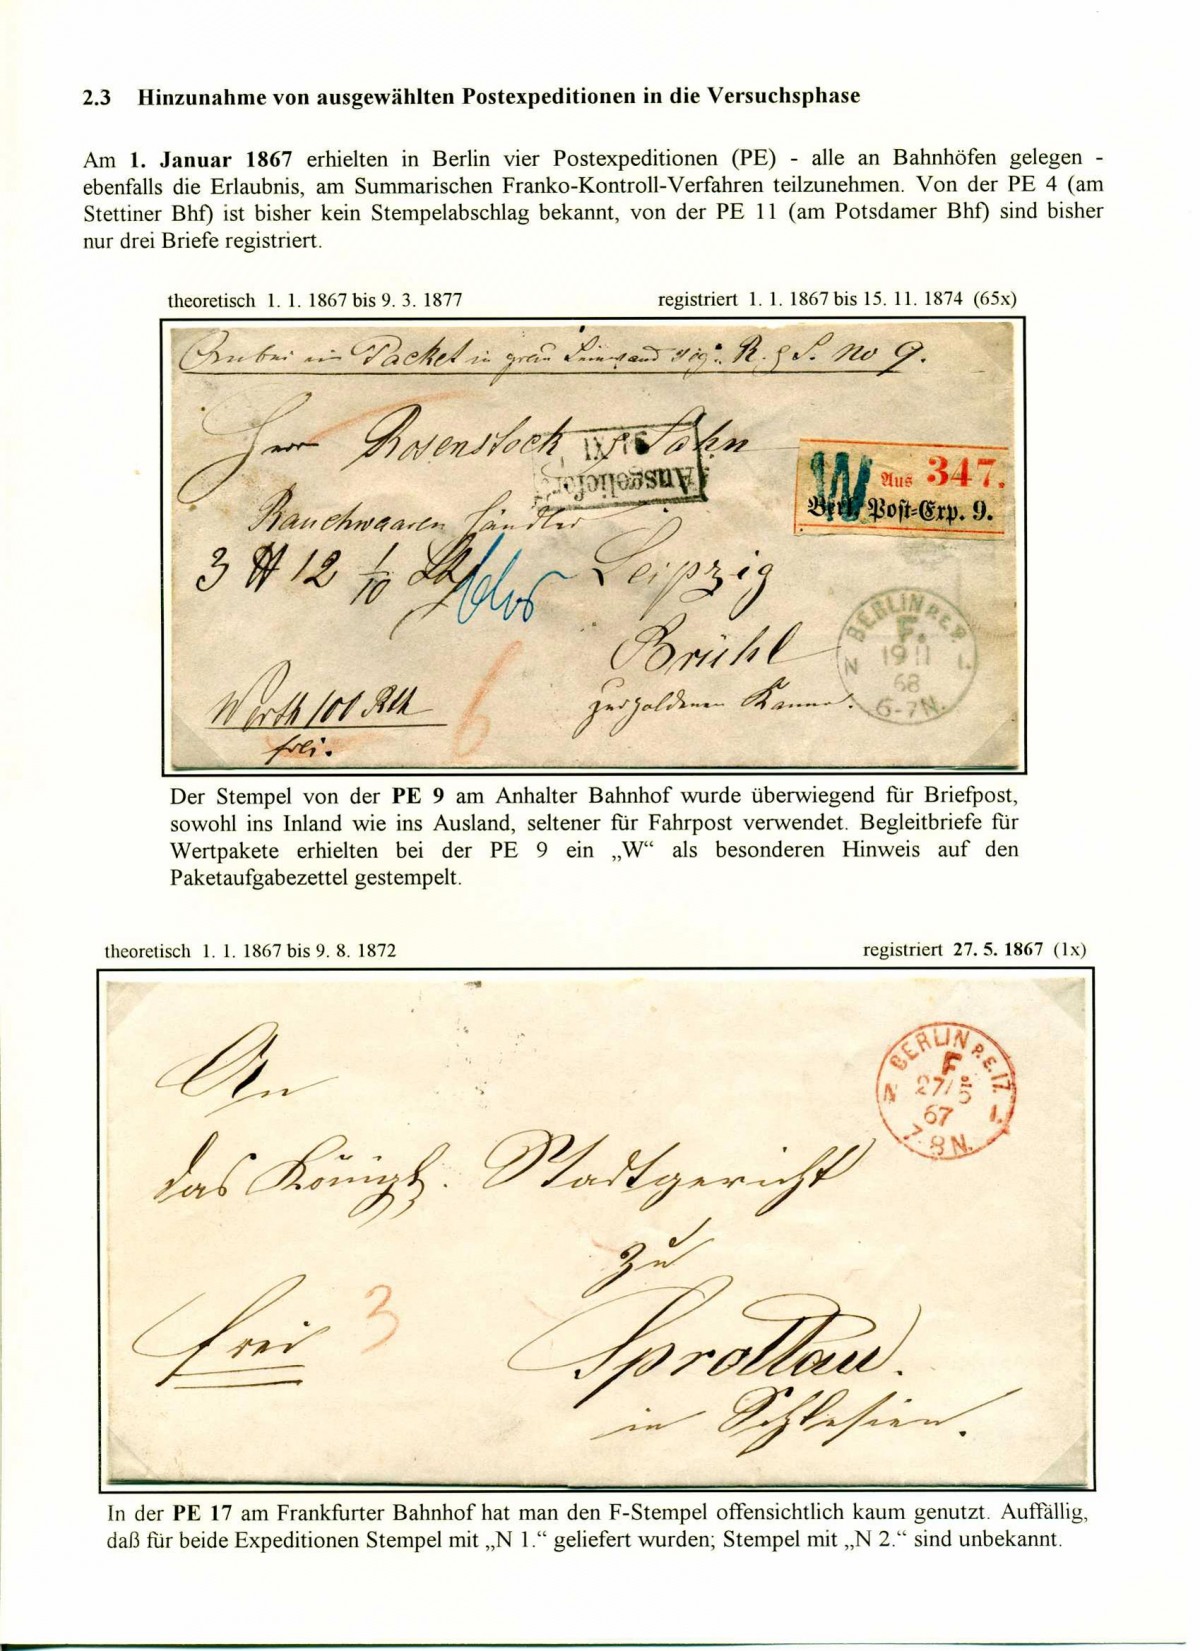 2.3 Hinzunahme von ausgewählten Postexpeditionen in die Versuchsphase
Am 1. Januar 1867 erhielten in Berlin vier Postexpeditionen (PE) - alle an Bahnhöfen gelegen -
ebenfalls die Erlaubnis, am Summarischen Franko-Kontroll-Verfahren teilzunehmen. Von der PE 4 (am
Stettiner Bhf) ist bisher kein Stempelabschlag bekannt, von der PE 11 (am Potsdamer Bhf) sind bisher
nur drei Briefe registriert.
theoretisch 1. 1. 1867 bis 9. 3. 1877 registriert 1. 1. 1867 bis 15. 11. 1874 (65x)
Packet in grau Leinwand R. & S. No 9.
Herr Rosenstock & Sohn
Ausgeliefer
XI
W Aus 347.
Berl. Post-Exp. 9.
Rauchwaaren Händler
3 12 1/10
Leipzig
Brühl
zur goldenen Kanne.
Werth 100 Rth
frei.
6
BERLIN P.E.9.
F.
19 11
68
6-7N.
N 1.
Der Stempel von der PE 9 am Anhalter Bahnhof wurde überwiegend für Briefpost,
sowohl ins Inland wie ins Ausland, seltener für Fahrpost verwendet. Begleitbriefe für
Wertpakete erhielten bei der PE 9 ein „W“ als besonderen Hinweis auf den
Paketaufgabezettel gestempelt.
theoretisch 1. 1. 1867 bis 9. 8. 1872 registriert 27. 5. 1867 (1x)
BERLIN P.E.17.
F.
27/5
67
7-8N.
N 1.
An
das Königl. Stadtgericht
zu
frei 3
Sprottau.
in Schlesien.
In der PE 17 am Frankfurter Bahnhof hat man den F-Stempel offensichtlich kaum genutzt. Auffällig,
daß für beide Expeditionen Stempel mit „N 1.“ geliefert wurden; Stempel mit „N 2.“ sind unbekannt.